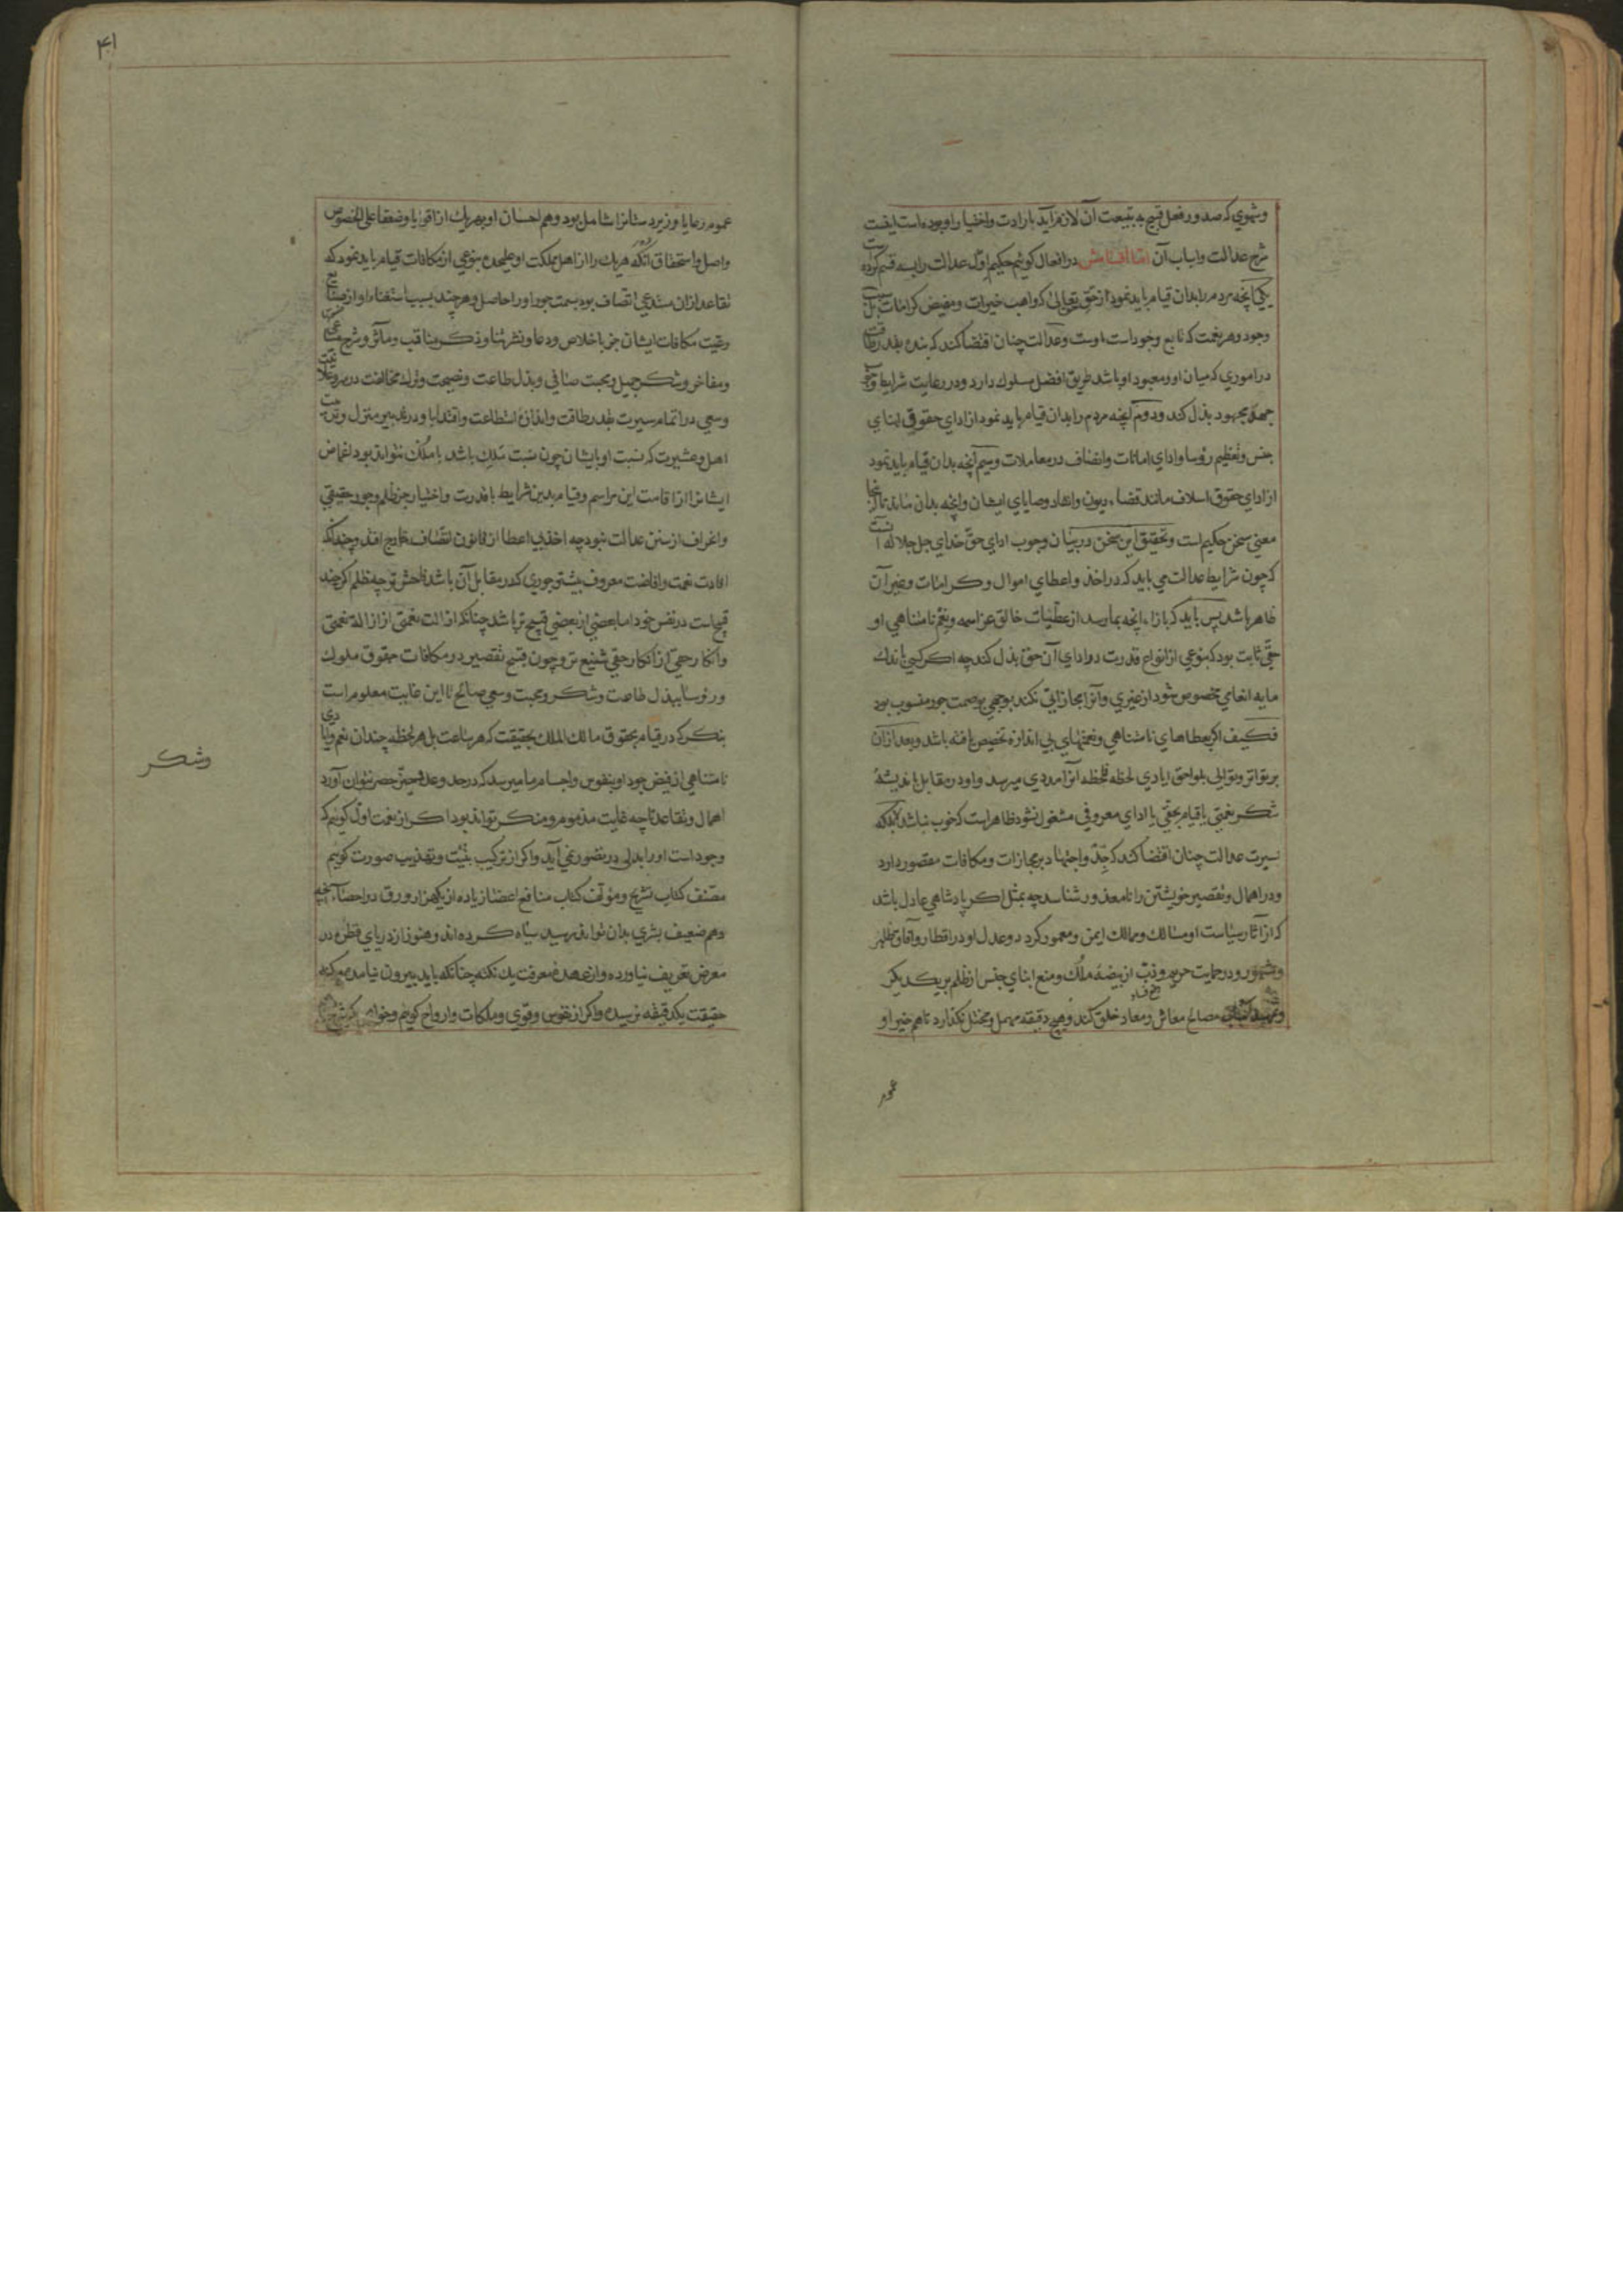 وشهوي که صدور فعل قبیح به تبعیت آن لازم آید بارادت واختیار او بوده است اینست
شرح عدالت واسباب آن اما اقسامش در افعال کوئیم حکیم اول عدالت را بسه قسم کرده
یکی آنچه مردم را بدان قیام باید نمود از حق تعالی که واهب خیرات ومفیض کرامات بل سبب
وجود وهر نعمت که تابع وجود است اوست وعدالت چنان اقتضا کند که بنده بقدر طاقت
در اموري که میان او ومعبود او باشد طریق افضل مسلوك دارد ودر رعایت شرایط وجوب
جهد مجهود بذل کند ودوم آنچه مردم را بدان قیام باید نمود از اداي حقوق ابناي
جنس وتعظیم رؤسا واداي امانات وانصاف در معاملات وسیم آنچه بدان قیام باید نمود
از اداي حقوق اسلاف مانند قضاء دیون وانفاد وصایاي ایشان وآنچه بدان ماند تا اینجا
معنی سخن حکیم است وتحقیق این سخن در بیان وجوب اداي حق خداي جل جلاله آنست
که چون شرایط عدالت می باید که در اخذ واعطاي اموال وکرامات وغیر آن
ظاهر باشد پس باید که بازاء آنچه بما رسد از عطیات خالق عز اسمه ونعم نامتناهی او
حقی ثابت بود که بنوعی از انواع قدرت در اداي آن حق بذل کند چه اکر کسی باندك
مایه انعامی مخصوص شود از غیري وآنرا مجازاتی نکند بوجهی بوصمت جور منسوب بود
فکیف اکر بعطاهاي نامتناهی ونعمتهاي بی اندازه تخصیص یافته باشد وبعد از آن
بر تواتر وتوالی بلواحق ایادي لحظه فلحظه آنرا مددي میرسد واو در مقابل باندیشهٔ
شکر نعمتی یا قیام بحقی یا اداي معروفی مشغول نشود ظاهر است که خوب نباشد بلکه
سیرت عدالت چنان اقتضا کند که جد واجتهاد بر مجازات ومکافات مقصور دارد
ودر اهمال وتقصیر خویشتن را نامعذور شناسد چه بمثل اکر پادشاهی عادل باشد
که از آثار سیاست او مسالك وممالك ایمن ومعمور کردد وعدل او در اقطار وآفاق ظاهر
ومشهور ودر حمایت حریم وذب از بیضهٔ ملك ومنع ابناي جنس از ظلم بر یکدیکر
مصالح معاش ومعاد خلق کند وهیچ دقیقه مهمل ومختل نکذارد تا هم خیر او
عموم
۴۱
عموم رعایا وزیردستانرا شامل بود وهم احسان او بهر یك از اقویا وضعفا علی الخصوص
واصل واستحقاق آنکه هر یك را از اهل مملکت او علحده بنوعی از مکافات قیام باید نمود که
تقاعد از آن مستدعی اتصاف بود بسمت جور او را حاصل وهر چند بسبب استغناء او از صنایع
رعیت مکافات ایشان جز باخلاص دعا ونشر ثنا وذکر مناقب ومآثر وشرح مساعی
ومفاخر وشکر جمیل ومحبت صافی وبذل طاعت ونصیحت وترك مخالفت در سر وعلانیت
وسعی در اتمام سیرت بقدر طاقت واندازهٔ استطاعت واقتدا باو در تدبیر منزل وترتیب
اهل وعشیرت که نسبت او بایشان چون نسبت ملك باشد با ملك نتواند بود اغماض
ایشانرا از اقامت این مراسم وقیام بدین شرایط با قدرت واختیار جز ظلم وجور حقیقی
وانحراف از سنن عدالت نبود چه اخذ بی اعطا از قانون انصاف خارج افتد وچندانکه
افادت نعمت وافاضت معروف بیشتر جوري که در مقابل آن باشد فاحش تر چه ظلم اکر چند
قبیح است در نفس خود اما بعضی از بعضی قبیح تر باشد چنانکه ازالت نعمتی از ازالهٔ نعمتی
وانکار حقی از انکار حقی شنیع تر وچون قبح تقصیر در مکافات حقوق ملوك
ورؤسا ببذل طاعت وشکر ومحبت وسعی صالح تا این غایت معلوم است
بنکر که در قیام بحقوق مالك الملك بحقیقت که هر ساعت بل هر لحظه چندان نعم وایادی
نامتناهی از فیض جود او بنفوس واجسام ما میرسد که در حد وعد وحیز حصر نتوان آورد
اهمال وتقاعد تا چه غایت مذموم ومنکر تواند بود اکر از نعمت اول کوئیم که
وجود است او را بدلی در تصور نمی آید واکر از ترکیب بنیت وتهذیب صورت کوئیم
مصنف کتاب تشریح ومؤلف کتاب منافع اعضا زیاده از یکهزار ورق در احصاء آنچه
وهم ضعیف بشري بدان تواند رسید سیاه کرده اند وهنوز از دریاي قطره در
معرض تعریف نیاورده واز عهدهٔ معرفت یك نکته چنانکه باید بیرون نیامده وبکنه
حقیقت یکدقیقه نرسیده واکر از نفوس وقوی وملکات وارواح کوئیم وخواهیم که شرح
وشکر